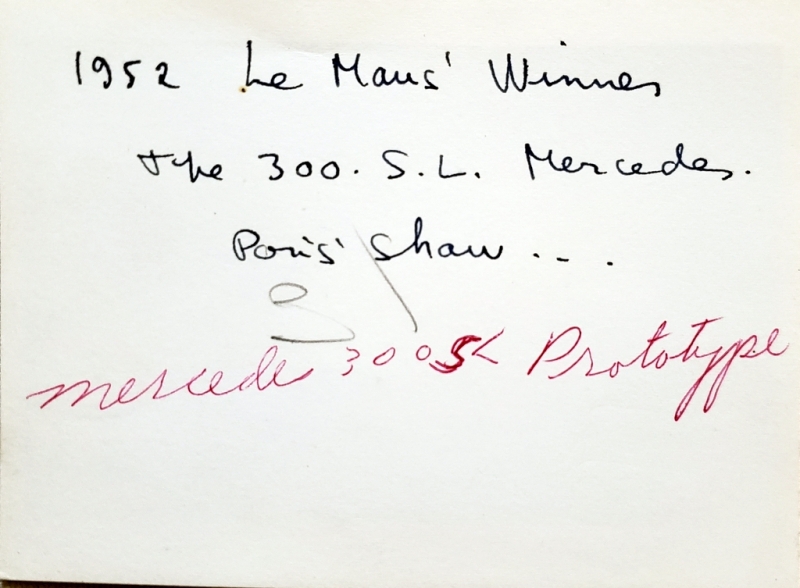 1952 Le Mans' Winner
type 300. S.L. Mercedes.
Paris' Show ...
mercedes 300SL Prototype